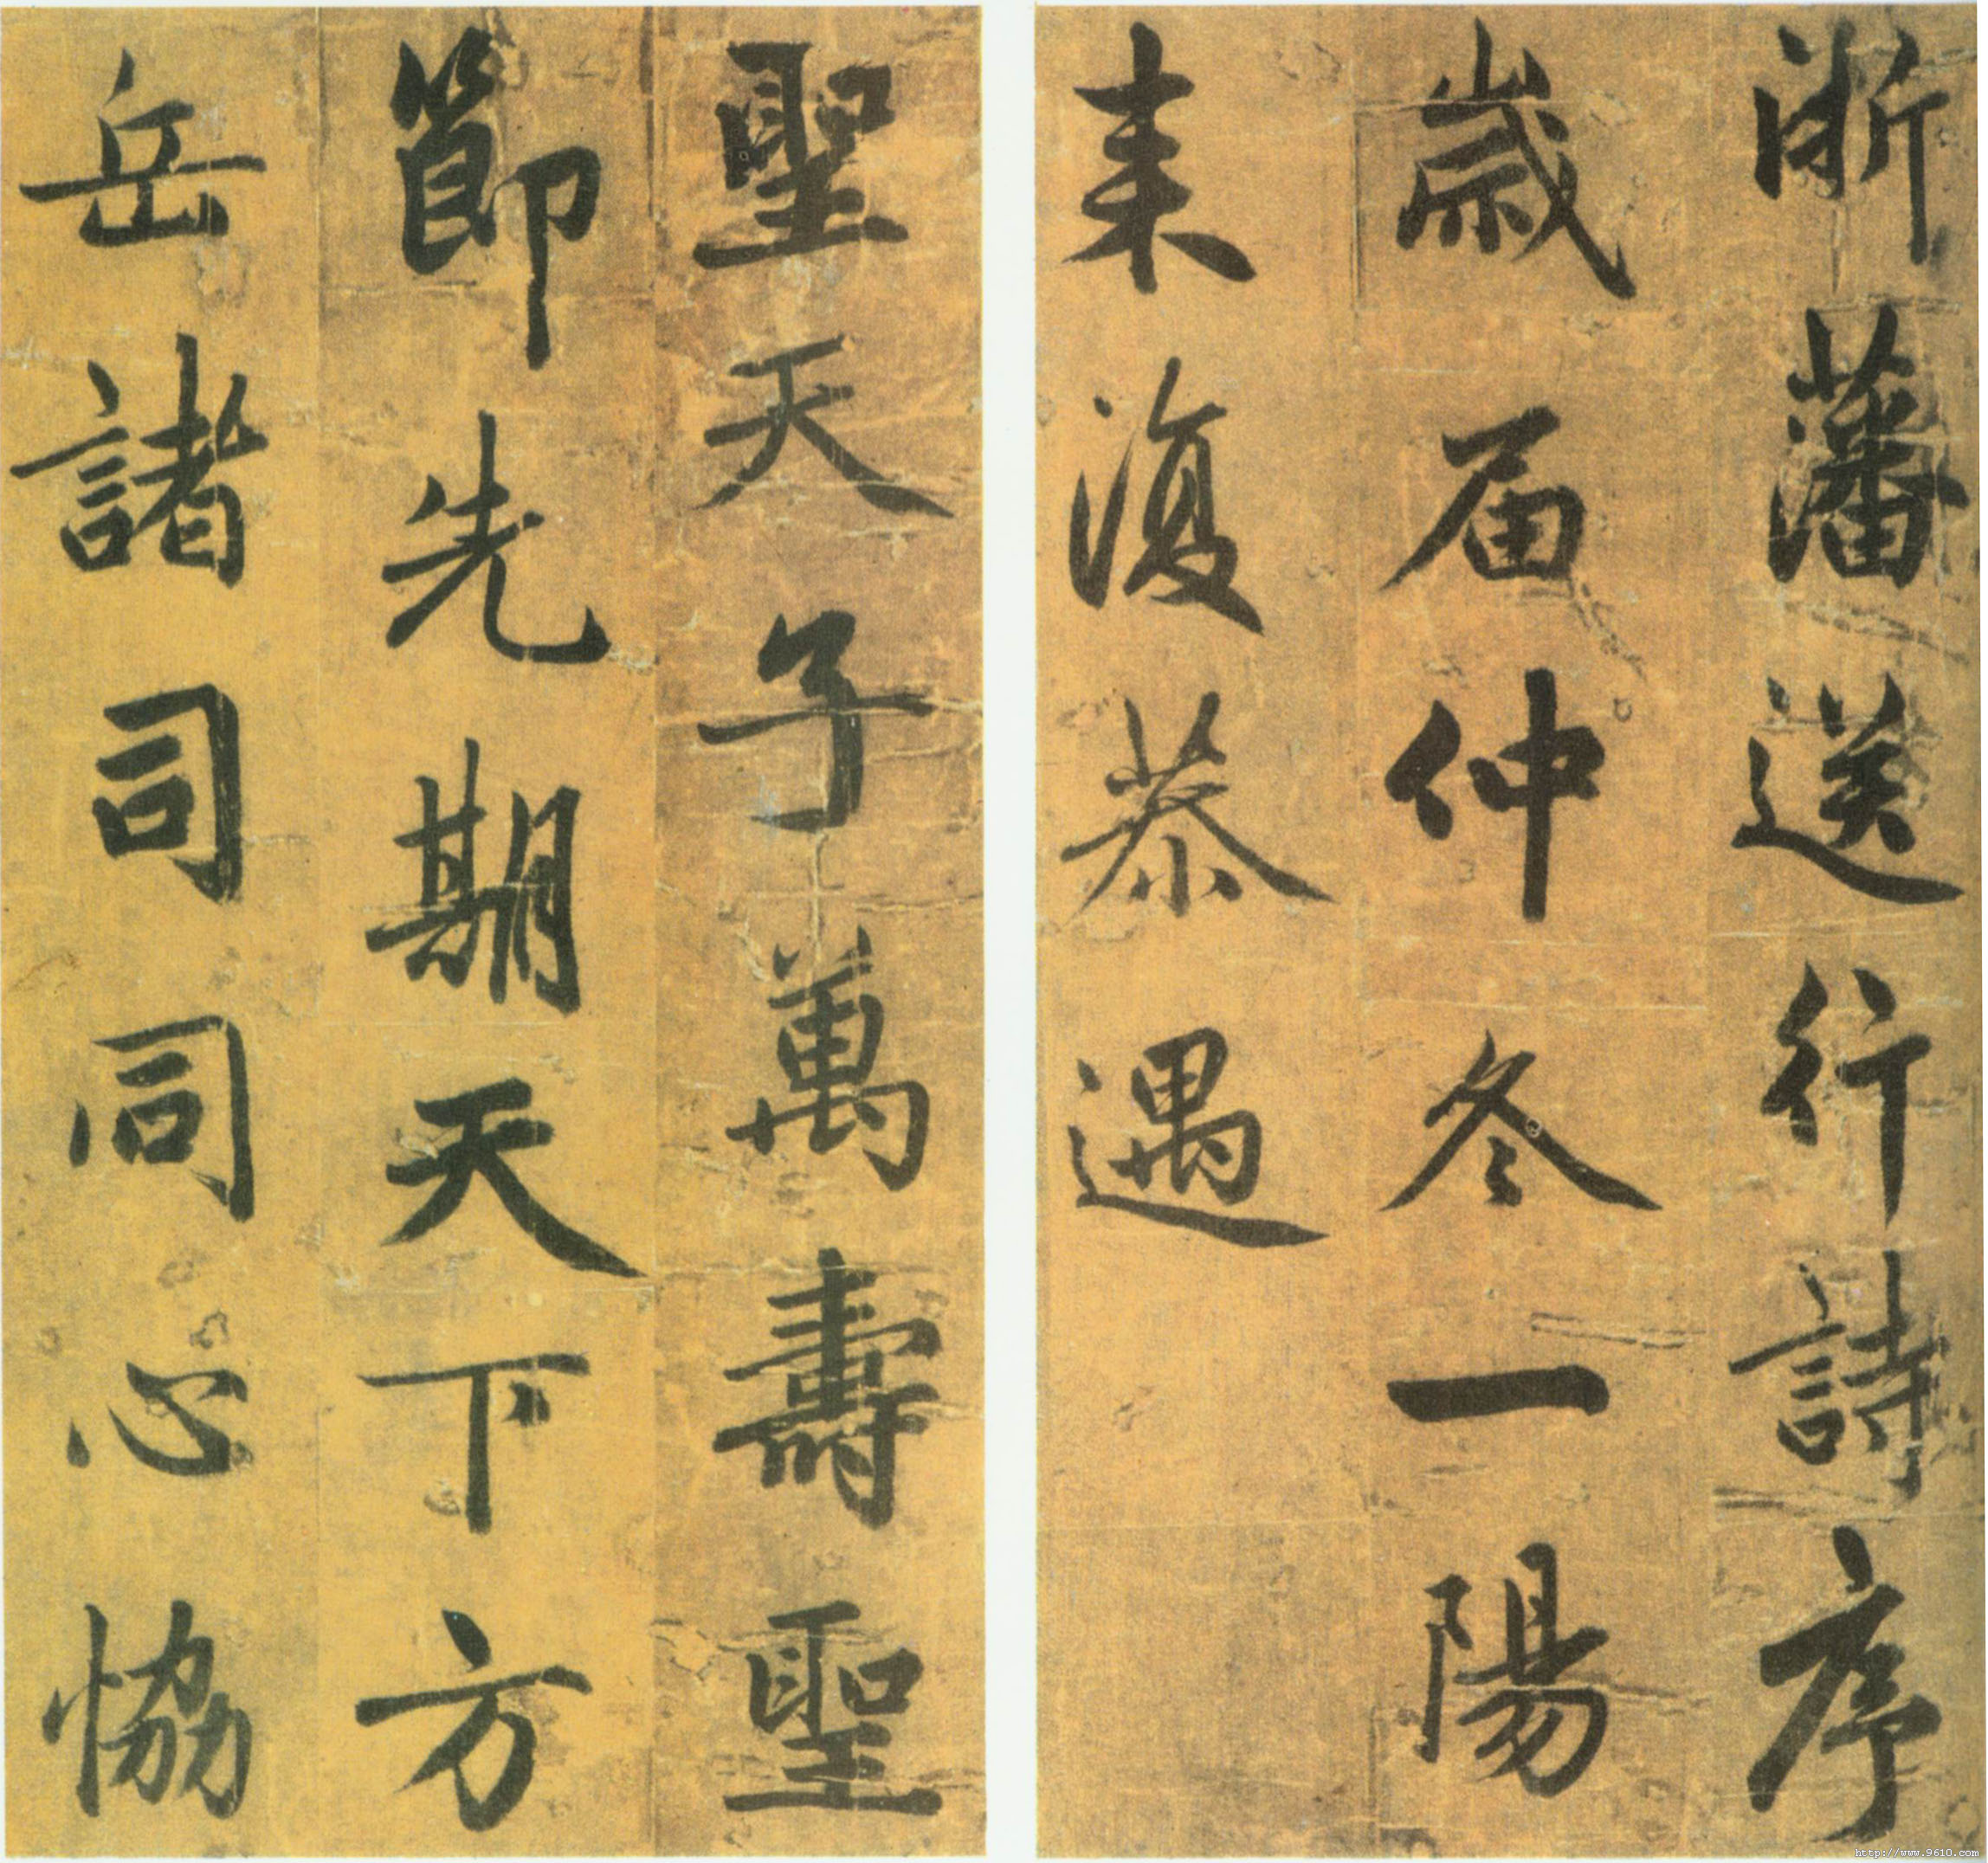 浙藩送行詩序
歲届仲冬一陽
来復恭遇
聖天子萬壽聖
節先期天下方
岳諸司同心恊
http://www.9610.com